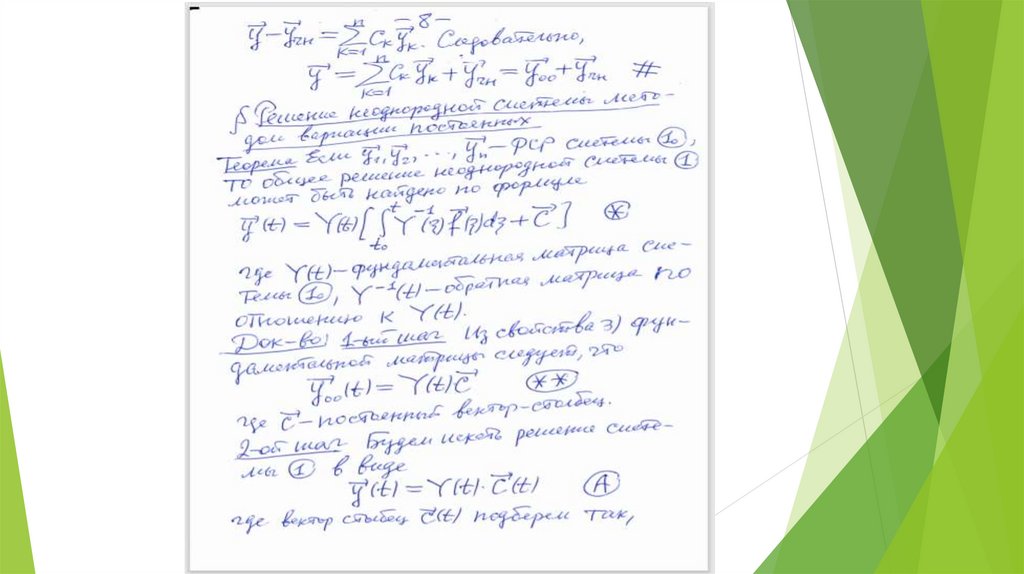 – 8 –
$\vec{y} - \vec{y}_{чн} = \sum_{k=1}^{n} c_k \vec{y}_k$. Следовательно,
$\vec{y} = \sum_{k=1}^{n} c_k \vec{y}_k + \vec{y}_{чн} = \vec{y}_{оо} + \vec{y}_{чн}$ #
§ Решение неоднородной системы мето-
дом вариации постоянных
Теорема Если $\vec{y}_1, \vec{y}_2, \ldots, \vec{y}_n$ – ФСР системы (1₀),
то общее решение неоднородной системы (1)
может быть найдено по формуле
$\vec{y}(t) = Y(t)\left[\int_{t_0}^{t} Y^{-1}(\xi)\vec{f}(\xi)d\xi + \vec{C}\right]$ (*)
где Y(t) – фундаментальная матрица сис-
темы (1₀), $Y^{-1}(t)$ – обратная матрица по
отношению к Y(t).
Док-во: 1-ый шаг Из свойства 3) фун-
даментальной матрицы следует, что
$\vec{y}_{оо}(t) = Y(t)\vec{C}$ (**)
где $\vec{C}$ – постоянный вектор-столбец.
2-ой шаг Будем искать решение систе-
мы (1) в виде
$\vec{y}(t) = Y(t) \cdot \vec{C}(t)$ (A)
где вектор столбец $\vec{C}(t)$ подберем так,